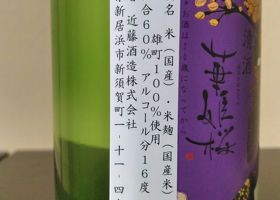 名 米（国産）・米麹（国産米）
雄町100%使用
合60% アルコール分16度
近藤酒造株式会社
新居浜市新須賀町一-十一-四
お酒は
なってから
清酒
華姫桜